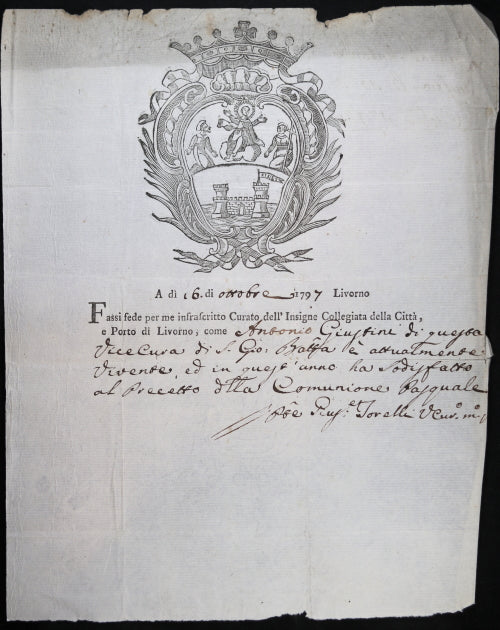 A dì 16. di ottobre 1797 Livorno
Fassi fede per me infrascritto Curato dell' Insigne Collegiata della Città,
e Porto di Livorno, come Antonio Giustini di questa
Vice Cura di S. Gio: Batta è attualmente
Vivente, ed in quest' anno ha Sodisfatto
al Precetto della Comunione Pasquale
Torelli